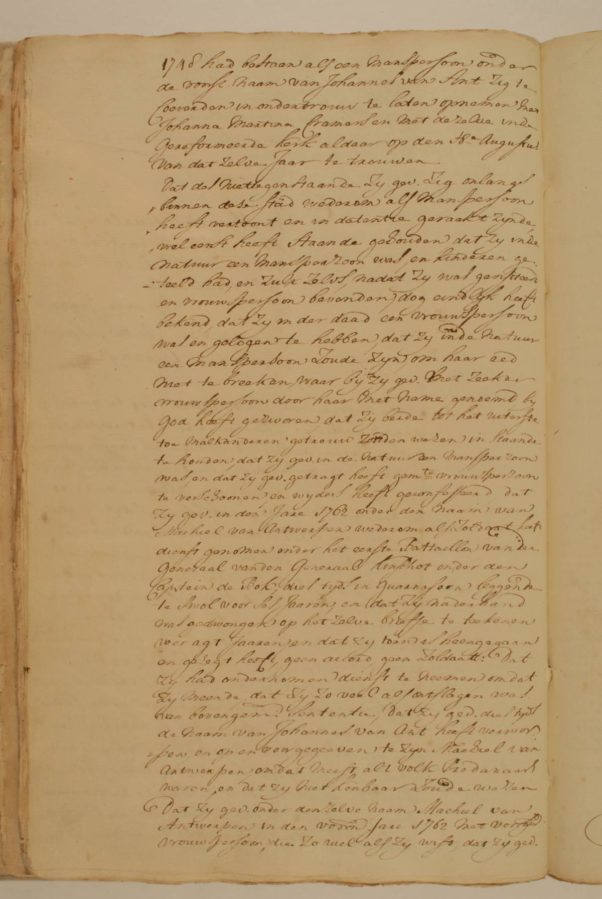 1748 had bestaan als een Manspersoon onder
de naam van Johannes van Ant zig te
in ondertrouw te laten opnemen met
Johanna Martina Cramers en met dezelve in de
Gereformeerde kerk aldaar op den Augustus
van dat zelve Jaar te trouwen
Dat des Niettegenstaande zy gev. zig onlangs
binnen deze stad wederom als Manspersoon
heeft vertoont en in detentie geraakt zynde
wel eerst heeft staande gehouden dat zy in de
natuur een Manspersoon was en kinderen ge-
teeld had en zelvs, nadat zy was
en vrouwspersoon bevonden, dog eindlyk heeft
bekend dat zy in der daad een vrouwspersoon
was en gelogen te hebben, dat zy in de Natuur
een Manspersoon zoude zyn, om haar eed
niet te breeken, waar by zy gev. met zeeker
vrouwspersoon door haar met name genoemd by
God heeft gezworen dat zy beide tot het uiterste
toe malkanderen getrouw zouden wezen in staande
te houden, dat zy gev. in de Natuur een Manspersoon
was en dat zy gev. getragt heeft gem. vrouwspersoon
te verschoonen en wyders heeft geconfesseerd dat
zy gev. in den Jare 1762 onder den naam van
Macheel van Antwerpen wederom als Soldaat
dienst genomen onder het eerste Battaillon van den
Generaal vanden Generaal onder den
Capitein de destyds in Guarnisoen leggende
te Swol voor ses Jaaren, en dat zy naderhand
was gedwongen op het zelve briefje te tekenen
voor agt Jaaren en dat zy
en gezegt heeft, geen accord geen Soldaat: Dat
zy had ondernomen dienst te neemen omdat
zy meende, dat zy zo veel als ontslagen was
van bovengem. Sententie, Dat zy ged. destyds
de Naam van Johannes van Ant heeft verwor-
pen en op en voorgegeven te zyn Macheel van
Antwerpen omdat meest al t volk brabanders
waren, en dat zy niet kenbaar zoude wezen
Dat zy gev. onder den zelve naam Macheel van
Antwerpen in den voorn. Jare 1762 met voorn.
vrouwspersoon, die zo wel als zy wist dat zy ged.